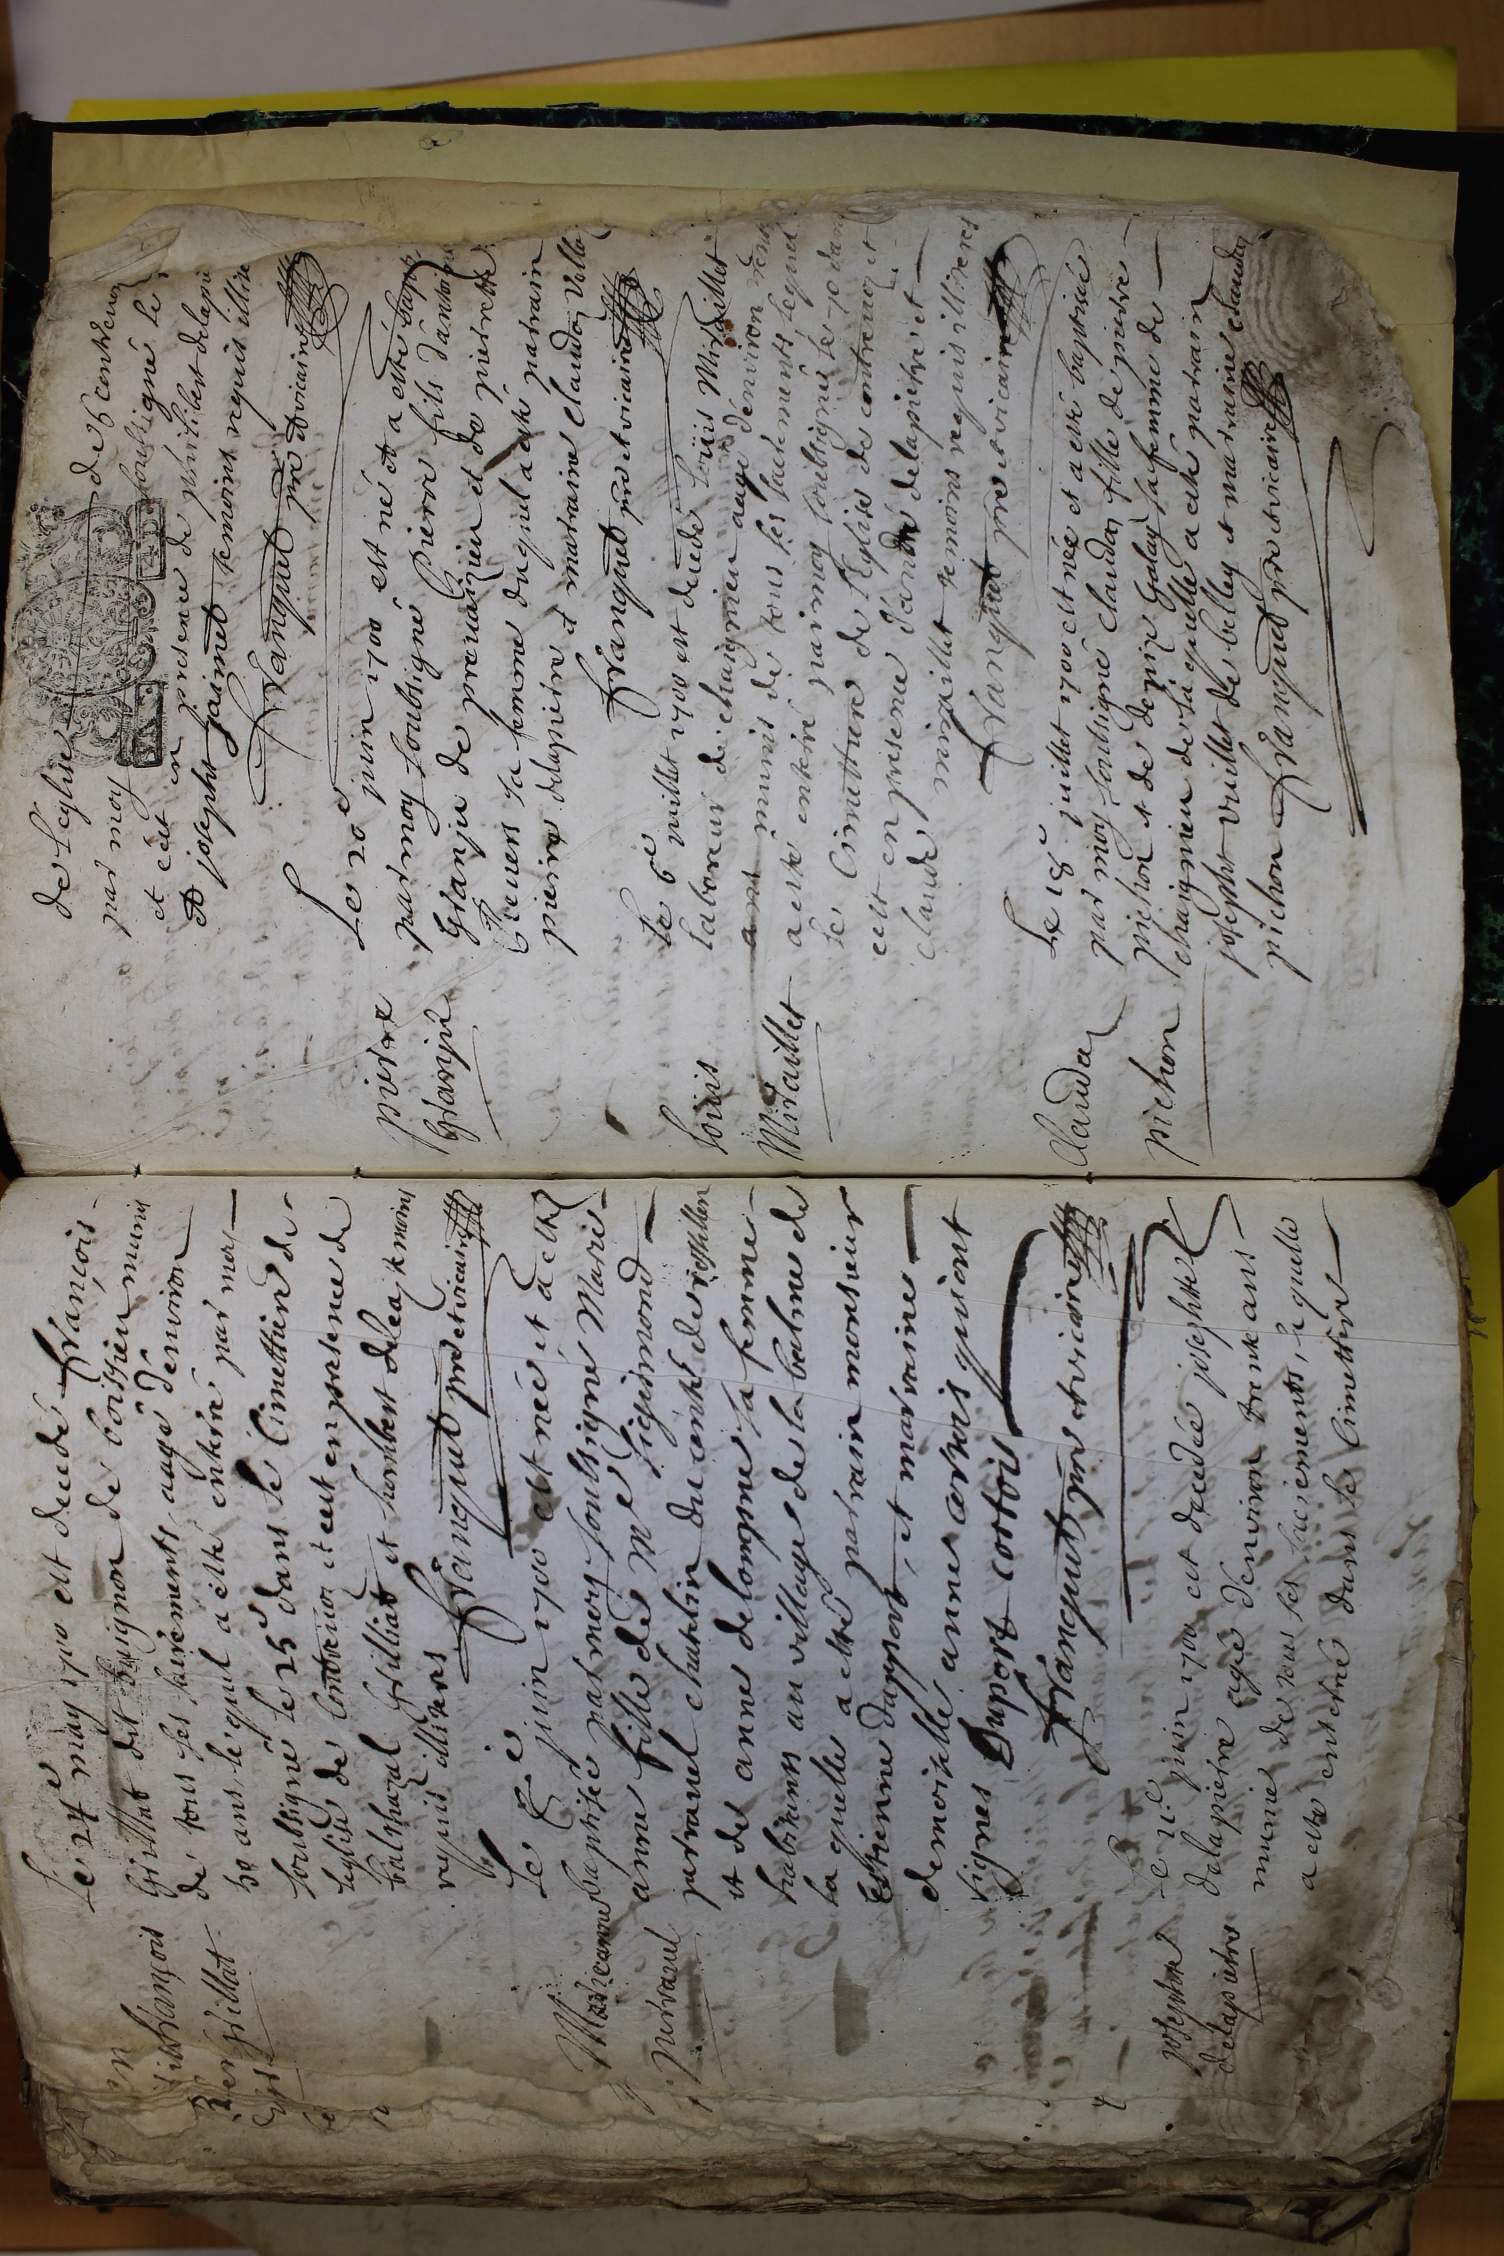 françois
Grillat
Le 24e may 1700 est decedé françois
Grillat dit bugignon de boissieu munis
de tous ses sacrements, aagé denviron
50 ans, lequel a esté enterré par moy
soubsigné le 25e dans le Cimettiere de
leglise de Contreuoz et cest en presence de
balthazal Grilliat et humbert deleaz temoins
requis illiteres franquet pre et vicaire
Marieanne
perraud
Le 8e juin 1700 est née et a esté
baptisée par moy soubsigné Marie
anne fille de Me Sigismond
perraud chatelin du comté de rossillon
et de anne delompne sa femme
habitans au village de la balme de
la quelle a esté parrain monsieur
Estienne dupport, et marraine
demoiselle anne cortois quiont
signes Duport cortois
franquet pre et vicaire
josephte
delapierre
Le 11e juin 1700 est decedée josephte
delapierre agée denviron trente ans
munie de tous ses sacrements, la quelle
a esté enterré dans le Cimettire
de leglise de Contreuoz
par moy soubsigné le
et cest en presence de philibert delapie
et josepht jaimet temoins requis illite
franquet pre et vicaire
pierre
Granju
Le 20e juin 1700 est né et a esté bapt
par moy soubsigné Pierre fils danthoi
Granju de premanzieu et de pierrette
reuers sa femme duquel a esté parrain
pierre delapierre et marraine Claudaz Vollo
franquet pre et vicaire
Louis
Miraillet
Le 6e juillet 1700 est decede Louis Miraillet
laboreur de chaignieu aagé denviron
ans munis de tous ses sacrements lequel
a esté enterré par moy soubsigné le 7e dan
le Cimettiere de leglise de contreuoz et
cest en presence de delapierre et
claude miraillet temoins requis illiteres
franquet pre et vicaire
Claudaz
pichon
Le 18e juillet 1700 est née et a esté baptisée
par moy soubsigné claudaz fille de pierre
pichon et de denize Golay sa femme de
chaignieu de la quelle a esté parrain
josepht vuillet de belley et marraine claudaz
pichon franquet pre et vicaire